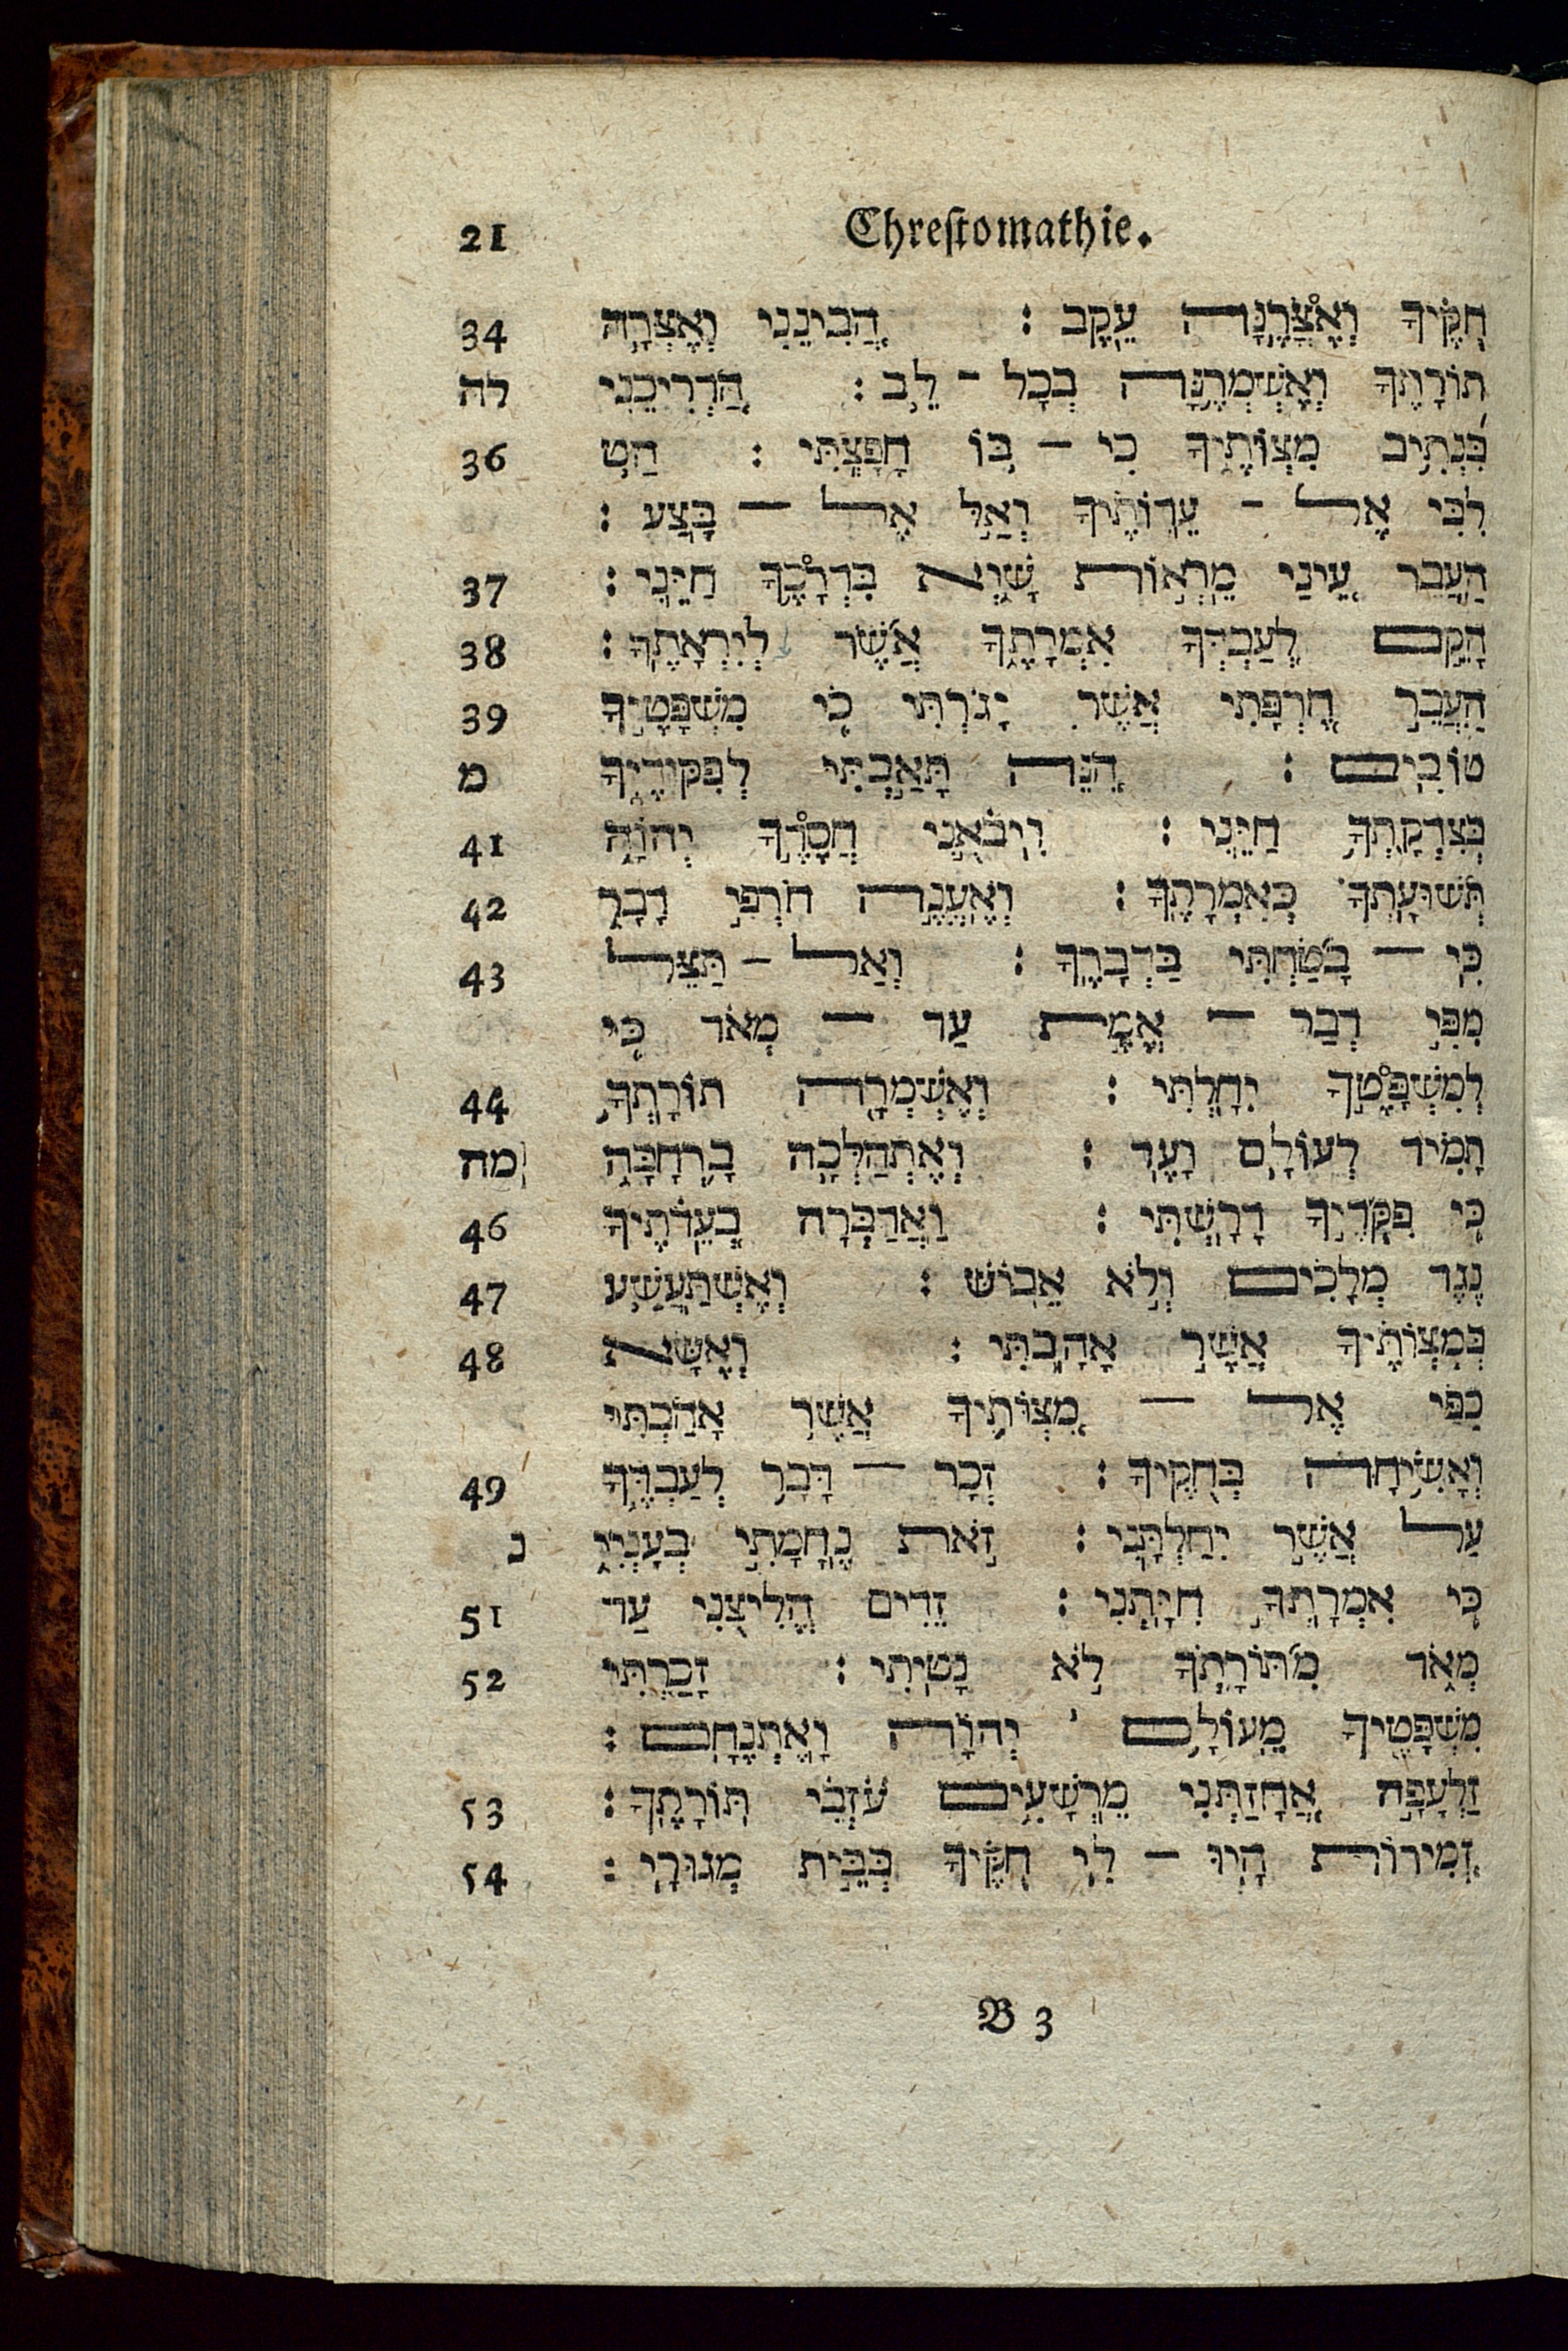 21 Chrestomathie.
חֻקֶּיךָ וְאֶצֳּרֶנָּה עֵקֶב : הֲבִינֵנִי וְאֶצְּרָה 34
תוֹרָתֶךָ וְאֶשְׁמְרֶנָּה בְכָל - לֵב : הַדְרִיכֵנִי לה
בִּנְתִיב מִצְוֺתֶיךָ כִּי - בוֹ חָפָצְתִּי : הַט 36
לִבִּי אֶל - עֵדְוֺתֶיךָ וְאַל אֶל - בָּצַע :
הַעֲבֵר עֵינַי מֵרְאוֹת שָׁוְא בִּדְרָכֶךָ חַיֵּנִי : 37
הָקֵם לְעַבְדְּךָ אִמְרָתֶךָ אֲשֶׁר לְיִרְאָתֶךָ : 38
הַעֲבֵר חֶרְפָּתִי אֲשֶׁר יָגֹרְתִּי כִּי מִשְׁפָּטֶיךָ 39
טוֹבִים : הִנֵּה תָּאַבְתִּי לְפִקּוּדֶיךָ מ
בְּצִדְקָתְךָ חַיֵּנִי : וִיבֹאֻנִי חֲסָדֶךָ יְהוָֹה 41
תְּשׁוּעָתְךָ כְּאִמְרָתֶךָ : וְאֶעֱנֶה חֹרְפִי דָבָר 42
כִּי - בָטַחְתִּי בִּדְבָרֶךָ : וְאַל - תַּצֵּל 43
מִפִּי דְבַר - אֱמֶת עַד - מְאֹד כִּי
לְמִשְׁפָּטֶךָ יִחָלְתִּי : וְאֶשְׁמְרָה תוֹרָתְךָ 44
תָמִיד לְעוֹלָם וָעֶד : וְאֶתְהַלְּכָה בָרְחָבָה מה
כִּי פִקֻּדֶיךָ דָרָשְׁתִּי : וַאֲדַבְּרָה בְעֵדֹתֶיךָ 46
נֶגֶד מְלָכִים וְלֹא אֵבוֹשׁ : וְאֶשְׁתַּעֲשַׁע 47
בְּמִצְוֺתֶיךָ אֲשֶׁר אָהָבְתִּי : וְאֶשָּׂא 48
כַפַּי אֶל - מִצְוֺתֶיךָ אֲשֶׁר אָהַבְתִּי
וְאָשִׂיחָה בְּחֻקֶּיךָ : זְכָר - דָּבָר לְעַבְדֶּךָ 49
עַל אֲשֶׁר יִחַלְתָּנִי : זֹאת נֶחָמָתִי בְעָנְיִי נ
כִּי אִמְרָתְךָ חִיָּתְנִי : זֵדִים הֱלִיצֻנִי עַד 51
מְאֹד מִתּוֹרָתְךָ לֹא נָטִיתִי : זָכַרְתִּי 52
מִשְׁפָּטֶיךָ מֵעוֹלָם יְהוָֹה וָאֶתְנֶחָם :
זַלְעָפָה אֲחָזַתְנִי מֵרְשָׁעִים עֹזְבֵי תּוֹרָתֶךָ : 53
זְמִירוֹת הָיוּ - לִי חֻקֶּיךָ בְּבֵית מְגוּרָי : 54
B 3